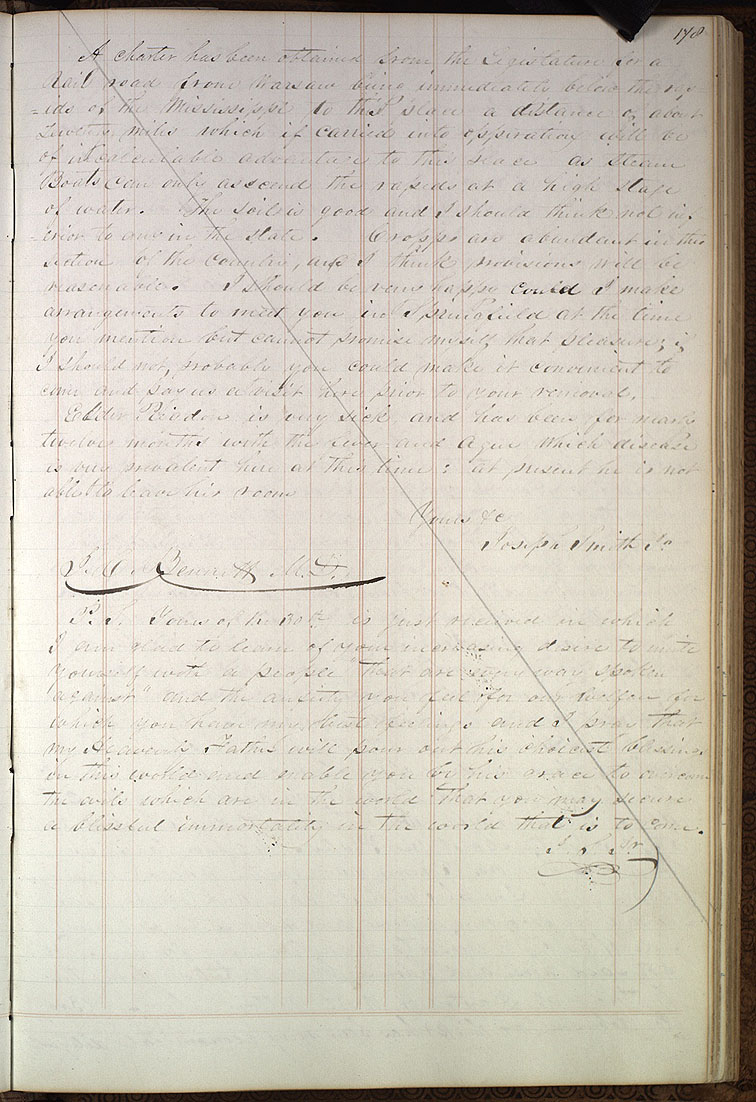 178
A charter has been obtained from the Legislature for a
Rail road from Warsaw being immediately below the rap-
=ids of the Mississippi to this place a distance of about
Twenty miles which if carried into opperation will be
of incalculable advantage to this place as steam
Boats can only asscend the rapids at a high stage
of water. The soil is good and I should think not inf-
=erior to any in the state. Cropps are abundent in this
section of the country, and I think provisions will be
reasonable. I should be very happy could I make
arrangements to meet you in Springfield at the time
you mention but cannot promise myself that pleasure; if
I should not, provably you could make it convenient to
come and pay us a visit here prior to your removal.
Elder Rigdon is very sick and has been for nearly
twelve months with the fever and Ague which disease
is very prevalent here at this time: at present he is not
able to leave his room
Yours &c
Joseph Smith Jr
J. C. Bennett M.D.
P.S. Yours of the 30th is just received in which
I am glad to learn of your increasing desire to unite
yourself with a people "that are every way spoken
against" and the anxiety you feel for our welfare for
which you have my best feelings and I pray that
my Heavenly Father will pour out his choicest blessings
in this world and enable you by his grace to overcome
the evils which are in the world that you may secure
a blissful immortality in the world that is to come.
J. S. Jr.